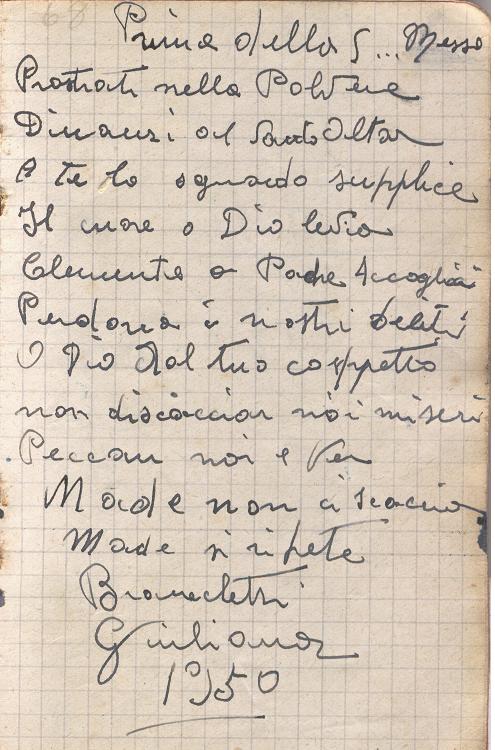 68
Prima della S... Messa
Prostrati nella Polvere
Dinanzi al Santo Altar
A te lo sguardo supplice
Il cuore o Dio levia
Clemente o Padre Accogli
Perdona i nostri delitti
O Dio Dal tuo cospetto
non discacciar noi miseri
Peccam noi e ver
Made non ci scaccia
Made si ripete
Giuliana
1950